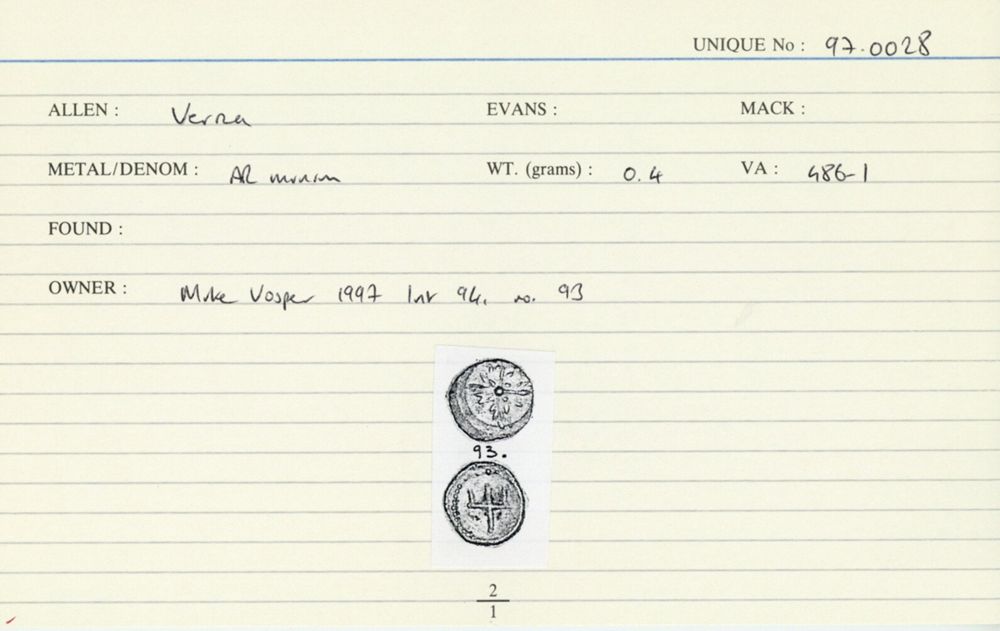 UNIQUE No : 97.0028
ALLEN : Verica EVANS : MACK :
METAL/DENOM : AR minim WT. (grams) : 0.4 VA : 486-1
FOUND :
OWNER : Mike Vosper 1997 Int 94. no. 93
93.
2
1